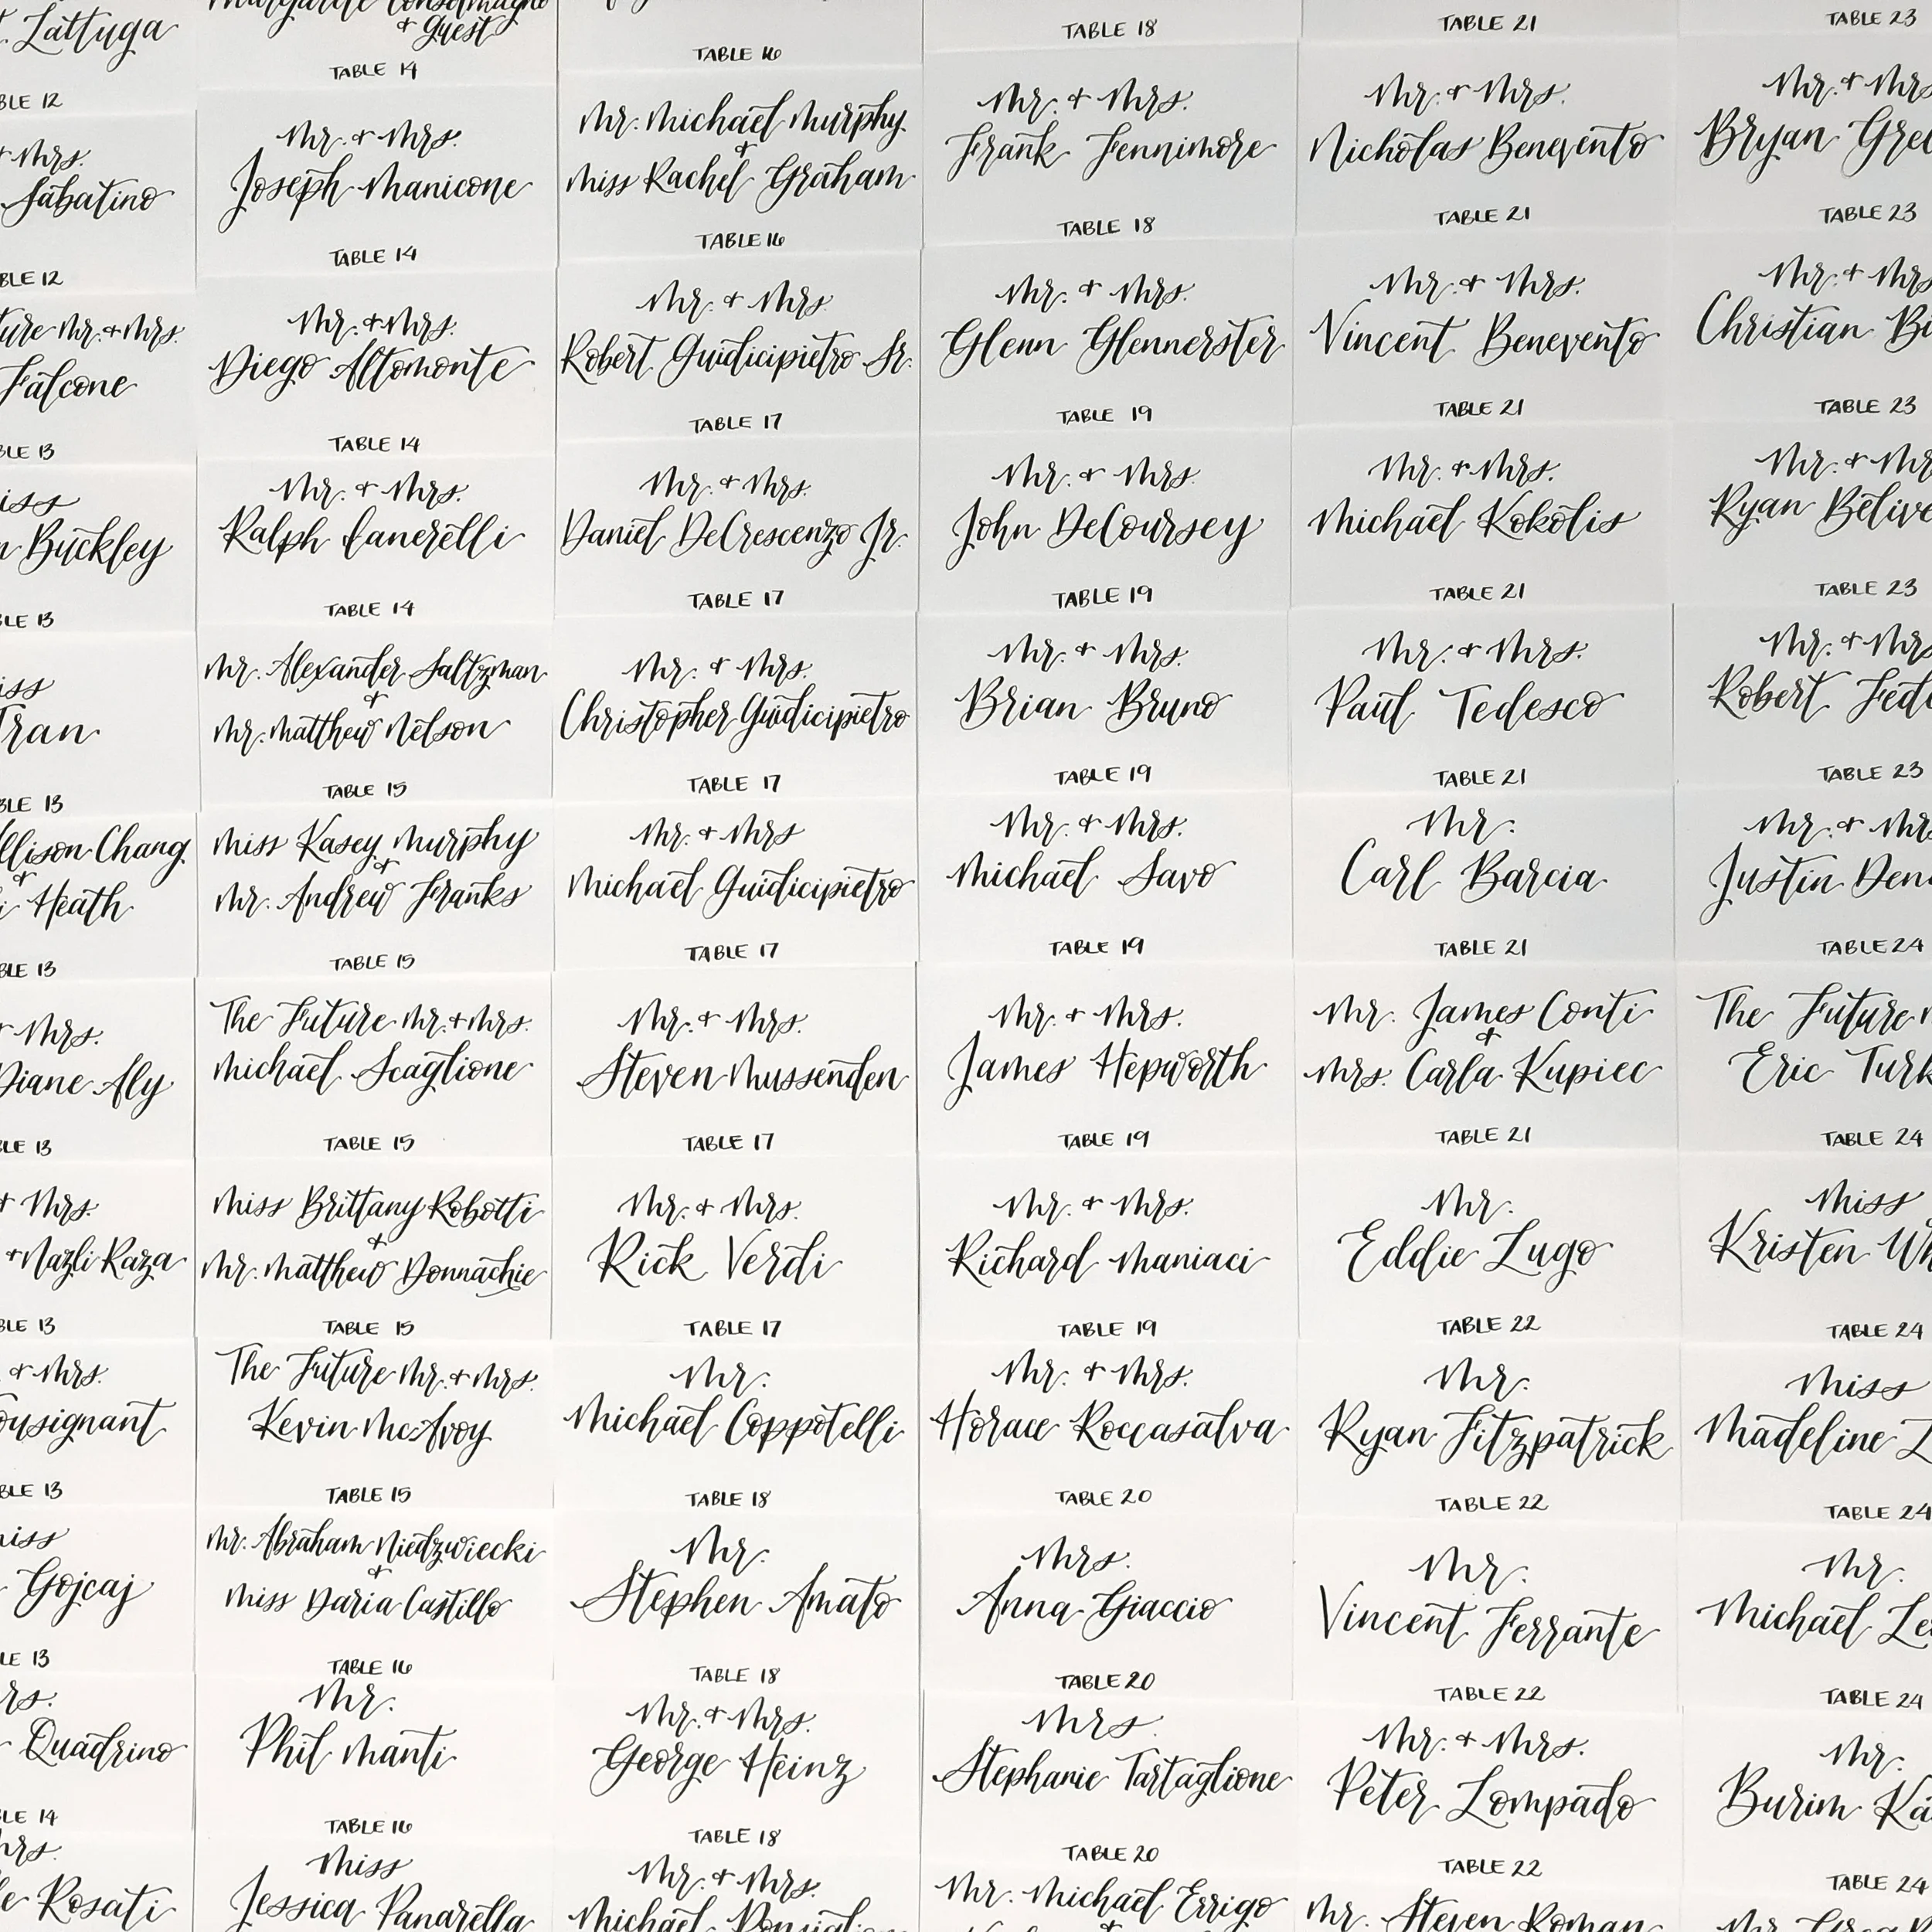 Lattuga
& Guest
TABLE 14
Mr. & Mrs.
Sabatino
TABLE 12
Future Mr. & Mrs.
Falcone
TABLE 13
Miss
Buckley
TABLE 13
Miss
Tran
TABLE 13
Allison Chang
&
Heath
TABLE 13
& Mrs.
Diane Aly
TABLE 13
& Mrs.
& Nazli Raza
TABLE 13
& Mrs.
TABLE 13
Miss
Gojcaj
TABLE 13
Mrs.
Quadrino
TABLE 14
Mrs.
Rosati
Mr. & Mrs.
Joseph Manicone
TABLE 14
Mr. & Mrs.
Diego Altomonte
TABLE 14
Mr. & Mrs.
Ralph Ianerelli
TABLE 14
Mr. Alexander Saltzman
&
Mr. Matthew Nelson
TABLE 15
Miss Kasey Murphy
&
Mr. Andrew Franks
TABLE 15
The Future Mr. & Mrs.
Michael Scaglione
TABLE 15
Miss Brittany Robotti
&
Mr. Matthew Donnachie
TABLE 15
The Future Mr. & Mrs.
Kevin McAvoy
TABLE 15
Mr. Abraham Niedzwiecki
&
Miss Daria Castillo
TABLE 16
Mr.
Phil Manti
TABLE 16
Miss
Jessica Panarella
TABLE 16
Mr. Michael Murphy
&
Miss Rachel Graham
TABLE 16
Mr. & Mrs.
Robert Guidicipietro Sr.
TABLE 17
Mr. & Mrs.
Daniel DeCrescenzo Jr.
TABLE 17
Mr. & Mrs.
Christopher Guidicipietro
TABLE 17
Mr. & Mrs
Michael Guidicipietro
TABLE 17
Mr. & Mrs.
Steven Mussenden
TABLE 17
Mr. & Mrs.
Rick Verdi
TABLE 17
Mr.
Michael Coppotelli
TABLE 18
Mr.
Stephen Amato
TABLE 18
Mr. & Mrs.
George Heinz
TABLE 18
Mr. & Mrs.
Michael
TABLE 18
Mr. & Mrs.
Frank Fennimore
TABLE 18
Mr. & Mrs.
Glenn Glennerster
TABLE 19
Mr. & Mrs.
John DeCoursey
TABLE 19
Mr. & Mrs.
Brian Bruno
TABLE 19
Mr. & Mrs.
Michael Savo
TABLE 19
Mr. & Mrs.
James Hepworth
TABLE 19
Mr. & Mrs.
Richard Maniaci
TABLE 19
Mr. & Mrs.
Horace Roccasalva
TABLE 20
Mrs.
Anna Giaccio
TABLE 20
Mrs.
Stephanie Tartaglione
TABLE 20
Mr. Michael Errigo
TABLE 21
Mr. & Mrs.
Nicholas Benevento
TABLE 21
Mr. & Mrs.
Vincent Benevento
TABLE 21
Mr. & Mrs.
Michael Kokolis
TABLE 21
Mr. & Mrs.
Paul Tedesco
TABLE 21
Mr.
Carl Barcia
TABLE 21
Mr. James Conti
&
Mrs. Carla Kupiec
TABLE 21
Mr.
Eddie Lugo
TABLE 22
Mr.
Ryan Fitzpatrick
TABLE 22
Mr.
Vincent Ferrante
TABLE 22
Mr. & Mrs.
Peter Lompado
TABLE 22
Mr. Steven Roman
TABLE 23
Mr. & Mrs
Bryan
TABLE 23
Mr. & Mrs
Christian
TABLE 23
Mr. & Mrs
Ryan
TABLE 23
Mr. & Mrs
Robert
TABLE 23
Mr. & Mrs
Justin
TABLE 24
The Future
Eric
TABLE 24
Miss
Kristen
TABLE 24
Miss
Madeline
TABLE 24
Mr.
Michael
TABLE 24
Mr.
Burim
TABLE 24
Mr.